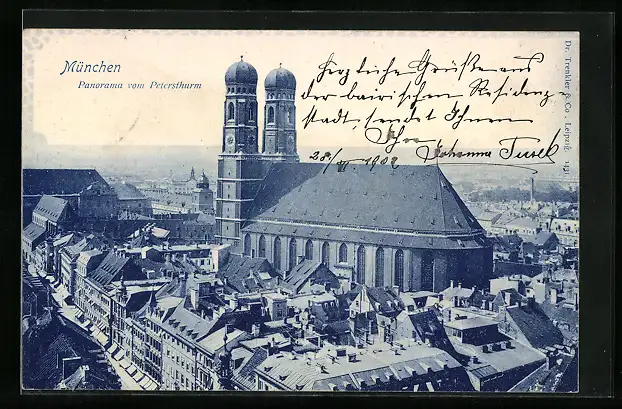 München
Panorama vom Petersthurm.
Herzliche Grüße aus
der bayrischen Residenz-
stadt, sendet Ihnen
Ihre Johanna
1902
Dr. Trenkler & Co., Leipzig.